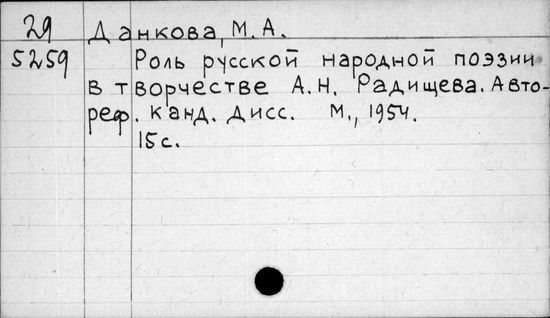 29 Данкова, М.А.
5259 Роль русской народной поэзии
в творчестве А.Н. Радищева. Авто-
реф. канд. дисс. М., 1954.
15с.